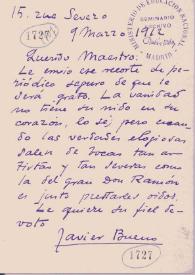 15, rue Severo
9 Marzo 1912
MINISTERIO DE EDUCACIÓN NACIONAL
SEMINARIO
ARCHIVO
MADRID
1727
Querido Maestro:
Le envío ese recorte de pe-
riódico seguro de que le
será grato. La vanidad
no tiene su nido en su
corazón, lo sé; pero cuan-
do las verdades elogiosas
salen de bocas tan ar-
tistas y tan severas como
la del Gran Don Ramón
es justo prestarles oídos.
Le quiere su fiel de-
voto
Javier Bueno
1727